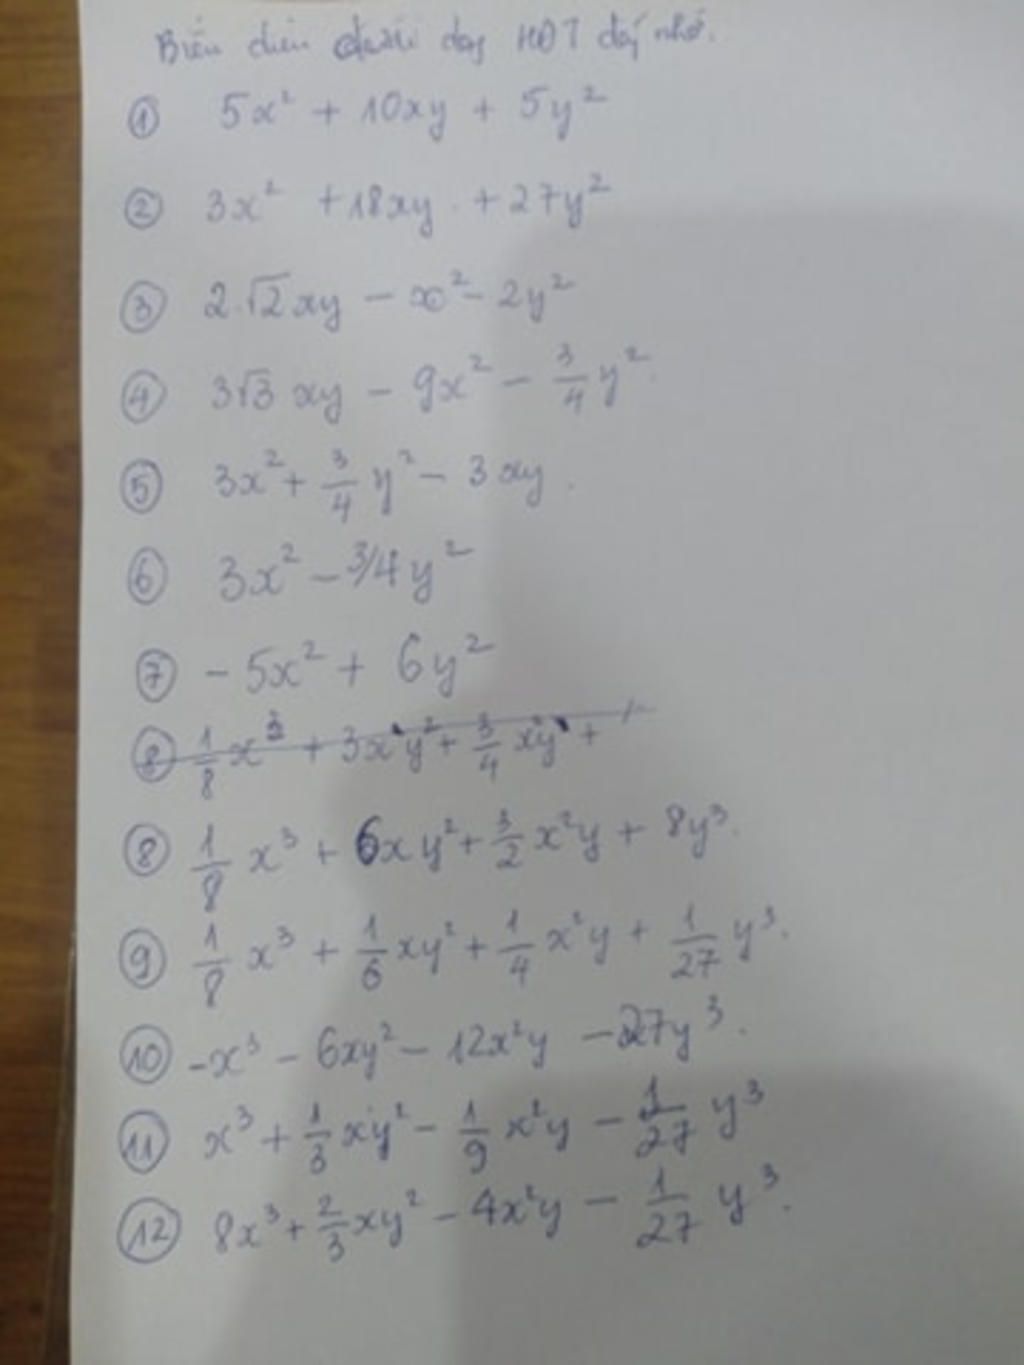 Biểu diễn dưới dạng HĐT đáng nhớ.
① 5x² + 10xy + 5y²
② 3x² + 18xy + 27y²
③ 2.√2xy − x² − 2y²
④ 3√3 xy − 9x² − 3/4 y².
⑤ 3x² + 3/4 y² − 3xy.
⑥ 3x² − 3/4 y²
⑦ − 5x² + 6y²
⑧ 1/8 x³ + 3x y² + 3/4 x²y +
⑧ 1/8 x³ + 6xy² + 3/2 x²y + 8y³.
⑨ 1/8 x³ + 1/6 xy² + 1/4 x²y + 1/27 y³.
⑩ -x³ − 6xy² − 12x²y − 27y³.
⑪ x³ + 1/3 xy² − 1/9 x²y − 1/27 y³
⑫ 8x³ + 2/3 xy² − 4x²y − 1/27 y³.